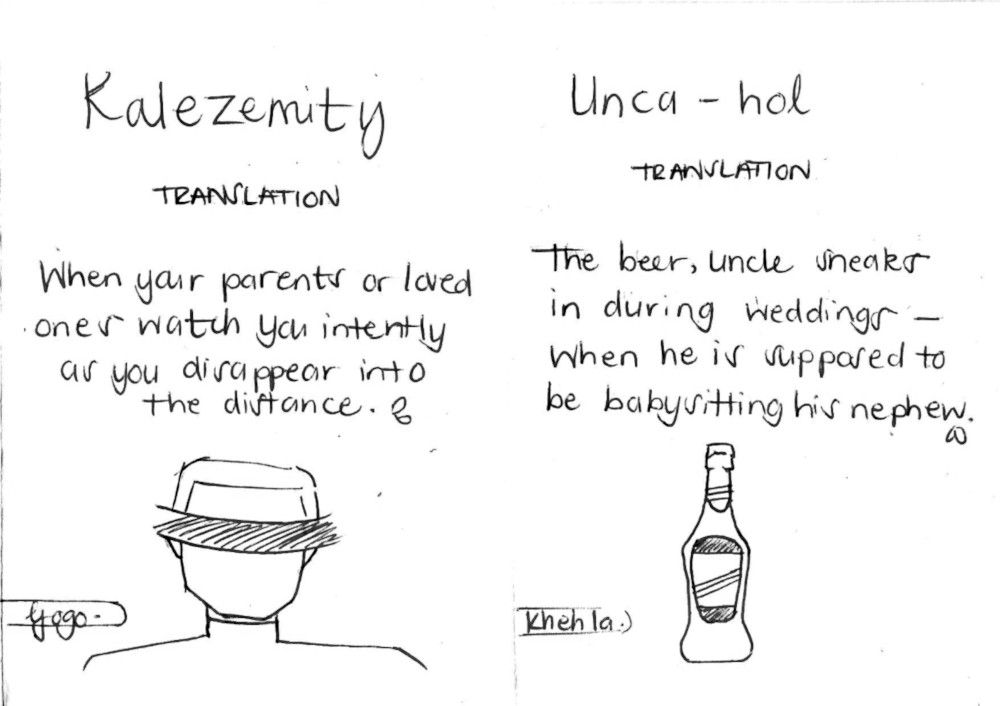 Kalezemity
TRANSLATION
When your parents or loved
ones watch you intently
as you disappear into
the distance.
Gogo.
Unca - hol
TRANSLATION
The beer, uncle sneaks
in during weddings -
When he is supposed to
be babysitting his nephew.
Khehla.)